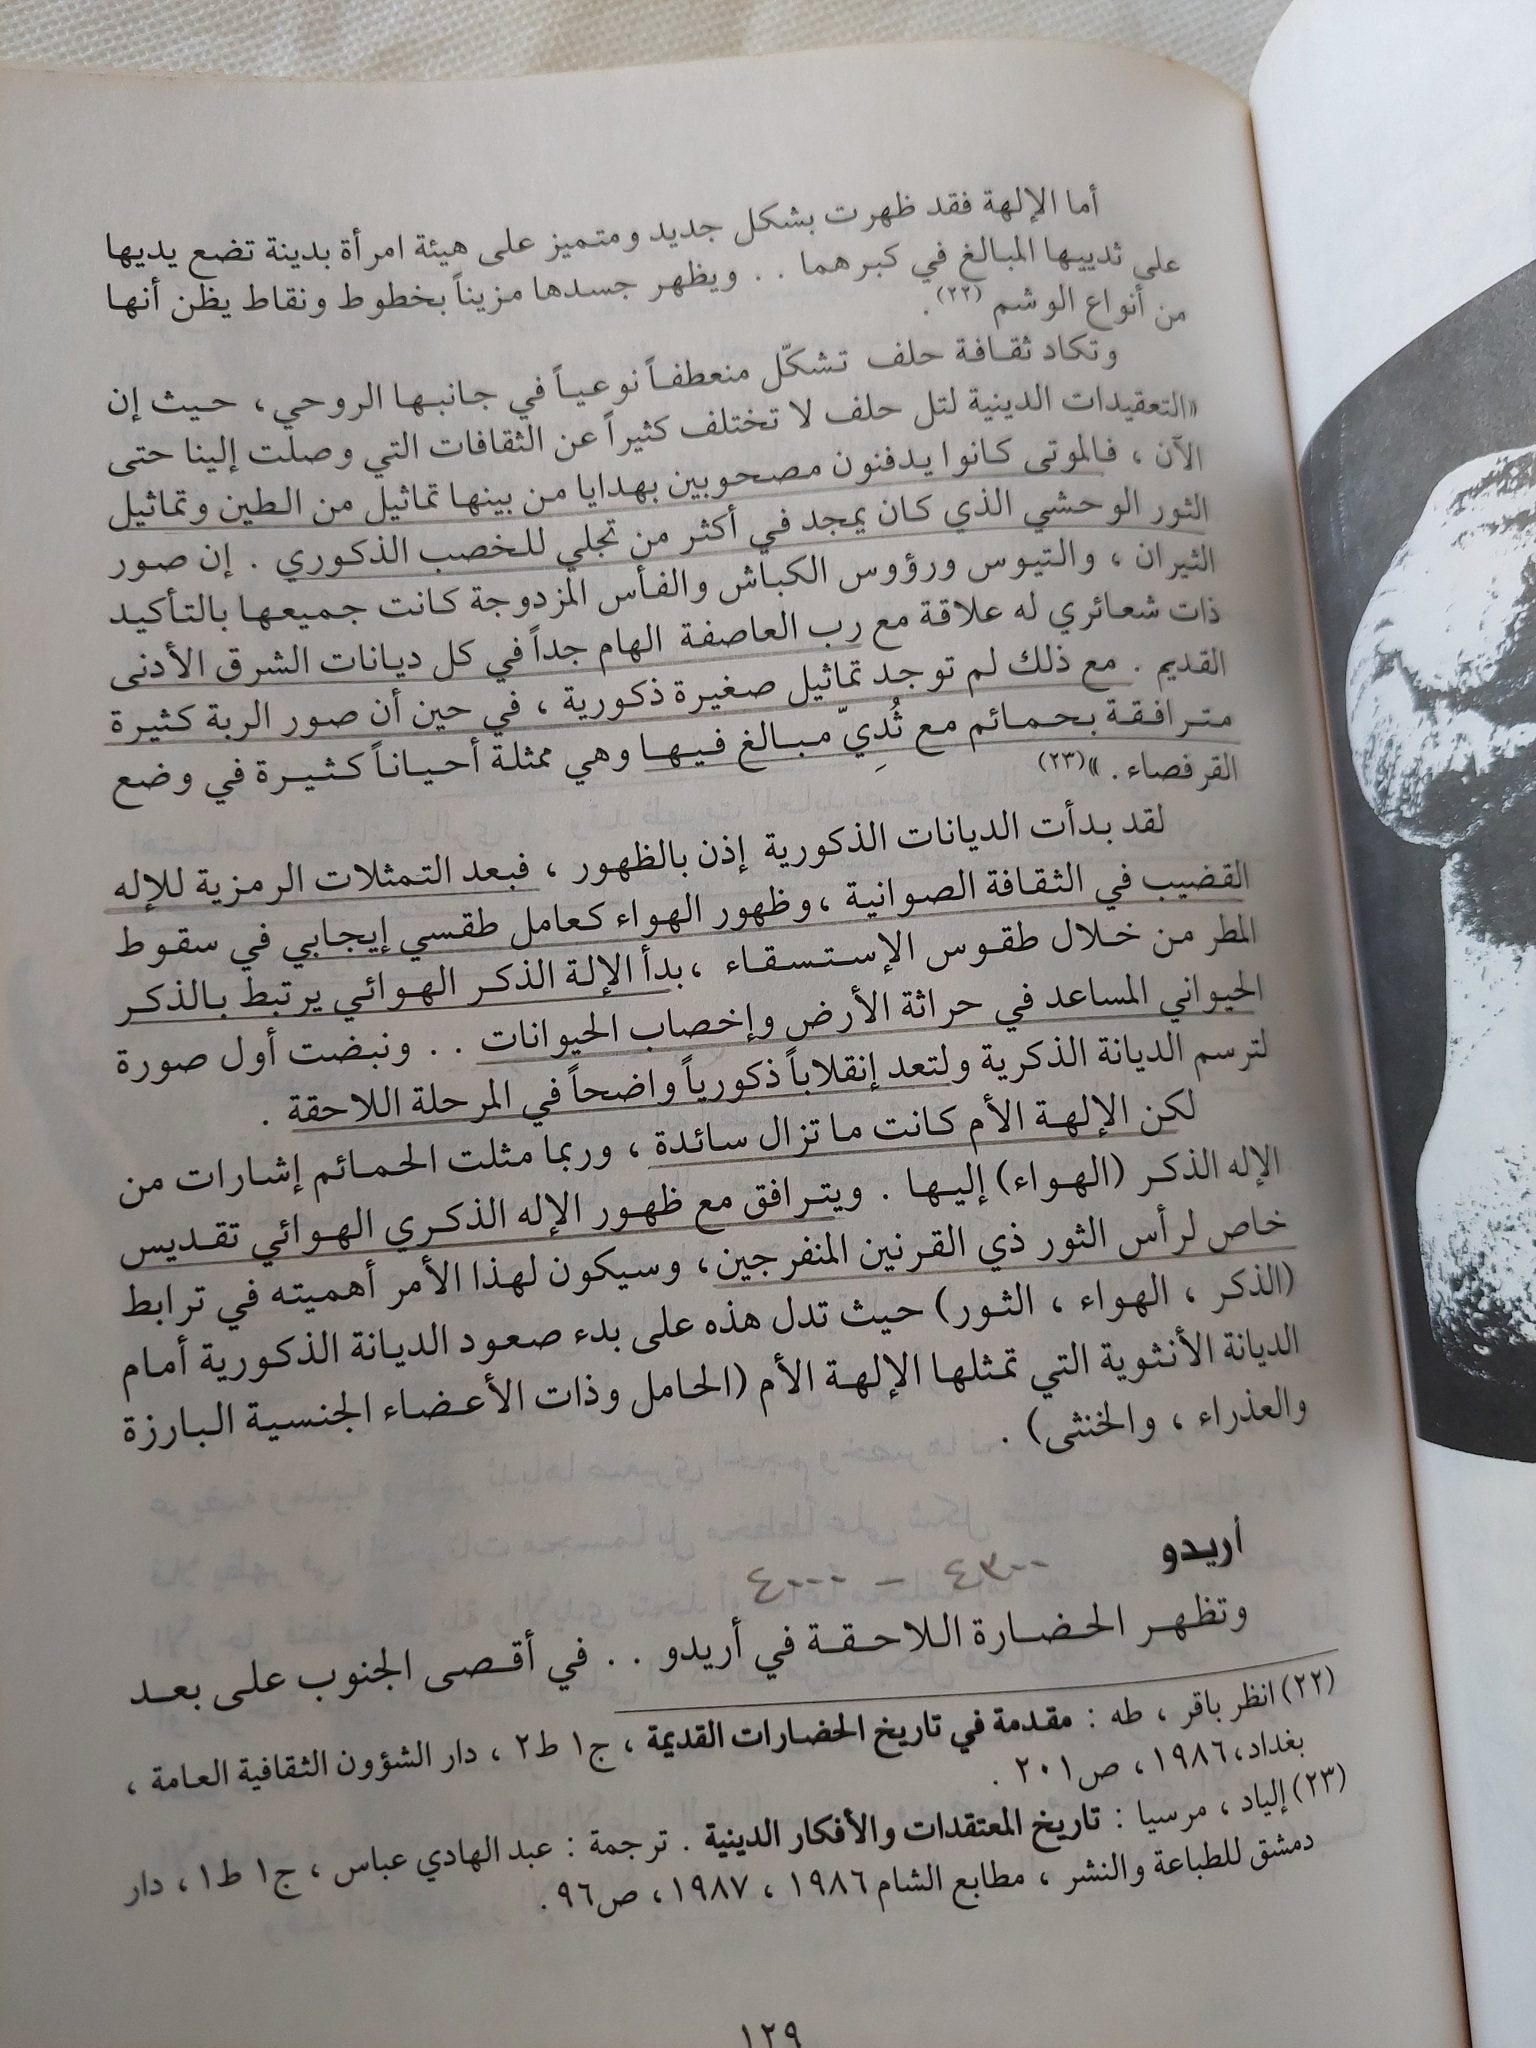 أما الإلهة فقد ظهرت بشكل جديد ومتميز على هيئة امرأة بدينة تضع يديها
على ثدييها المبالغ في كبرهما . . ويظهر جسدها مزيناً بخطوط ونقاط يظن أنها
من أنواع الوشم (٢٢).
وتكاد ثقافة حلف تشكّل منعطفاً نوعياً في جانبها الروحي، حيث إن
«التعقيدات الدينية لتل حلف لا تختلف كثيراً عن الثقافات التي وصلت إلينا حتى
الآن ، فالموتى كانوا يدفنون مصحوبين بهدايا من بينها تماثيل من الطين وتماثيل
الثور الوحشي الذي كان يمجد في أكثر من تجلي للخصب الذكوري . إن صور
الثيران ، والتيوس ورؤوس الكباش والفأس المزدوجة كانت جميعها بالتأكيد
ذات شعائري له علاقة مع رب العاصفة الهام جداً في كل ديانات الشرق الأدنى
القديم . مع ذلك لم توجد تماثيل صغيرة ذكورية ، في حين أن صور الربة كثيرة
مترافقة بحمائم مع ثُدِيّ مبالغ فيها وهي ممثلة أحياناً كثيرة في وضع
القرفصاء . »(٢٣)
لقد بدأت الديانات الذكورية إذن بالظهور ، فبعد التمثلات الرمزية للإله
القضيب في الثقافة الصوانية ، وظهور الهواء كعامل طقسي إيجابي في سقوط
المطر من خلال طقوس الإستسقاء ، بدأ الإلة الذكر الهوائي يرتبط بالذكر
الحيواني المساعد في حراثة الأرض وإخصاب الحيوانات . . ونبضت أول صورة
لترسم الديانة الذكرية ولتعد إنقلاباً ذكورياً واضحاً في المرحلة اللاحقة .
لكن الإلهة الأم كانت ما تزال سائدة ، وربما مثلت الحمائم إشارات من
الإله الذكر (الهواء) إليها . ويترافق مع ظهور الإله الذكري الهوائي تقديس
خاص لرأس الثور ذي القرنين المنفرجين، وسيكون لهذا الأمر أهميته في ترابط
(الذكر ، الهواء ، الثور) حيث تدل هذه على بدء صعود الديانة الذكورية أمام
الديانة الأنثوية التي تمثلها الإلهة الأم (الحامل وذات الأعضاء الجنسية البارزة
والعذراء ، والخنثى) .
أريدو
وتظهر الحضارة اللاحقة في أريدو . . في أقصى الجنوب على بعد
(٢٢) انظر باقر ، طه : مقدمة في تاريخ الحضارات القديمة ، ج١ ط٢ ، دار الشؤون الثقافية العامة ،
بغداد، ١٩٨٦ ، ص٢٠١ .
(٢٣) إلياد ، مرسيا : تاريخ المعتقدات والأفكار الدينية . ترجمة : عبد الهادي عباس ، ج١ ط١، دار
دمشق للطباعة والنشر ، مطابع الشام ١٩٨٦ ، ١٩٨٧، ص٩٦ .
١٢٩